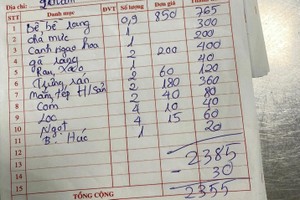 Địa chỉ:
STT Danh mục ĐVT Số lượng Đơn giá Thành tiền
1 Bề bề rang 0,9 850 765
2 chả mực 1 300
3 Canh ngao hoa 1 200
4 gà rang 2 200 400
5 Rau xào 1 40
6 Trứng rán 2 60 120
7 Mâm tép H/sản 2 180 360
8 Cơm 2 40 80
9 Lạc 4 10 40
10 Ngọt 4 15 60
11 B. Húc 1 20
12
13 2385
14 - 30
15 2355
TỔNG CỘNG